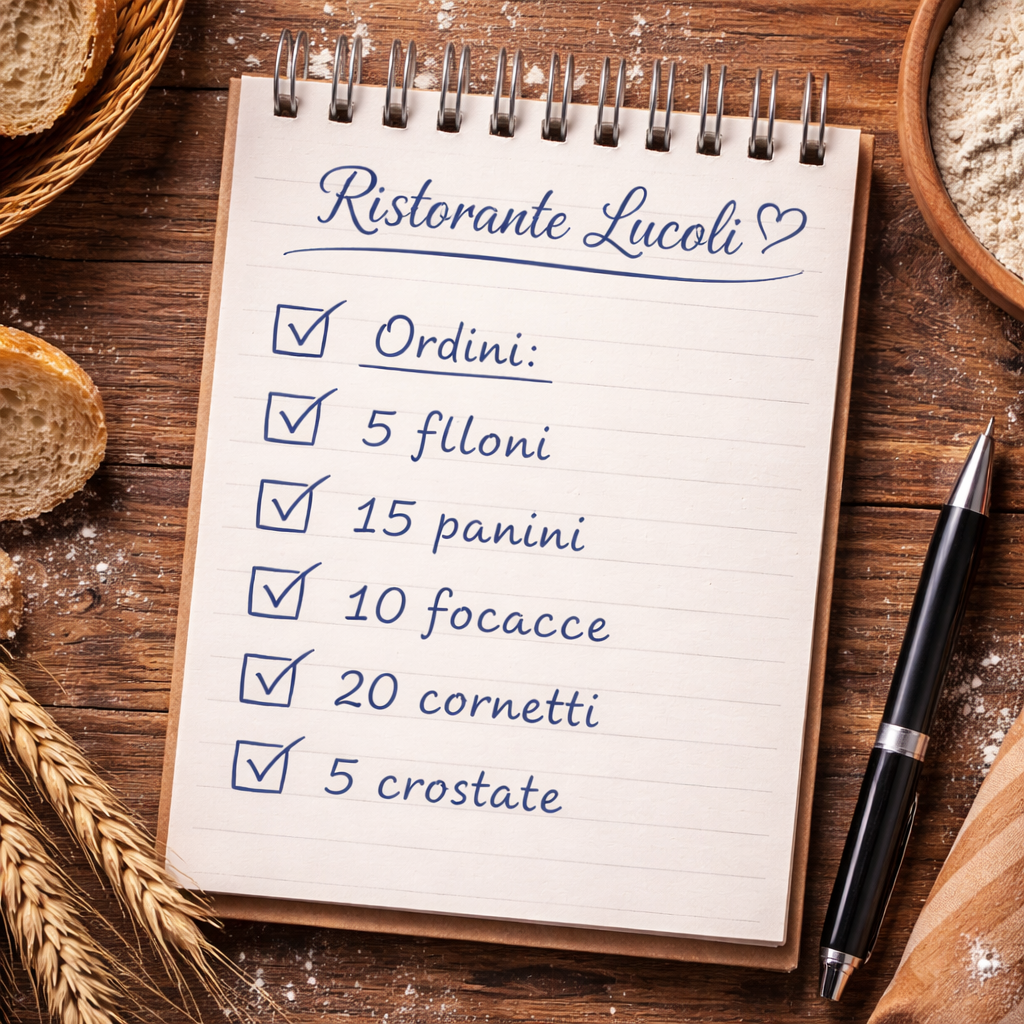 Ristorante Lucoli ♡
☑ Ordini:
☑ 5 flloni
☑ 15 panini
☑ 10 focacce
☑ 20 cornetti
☑ 5 crostate